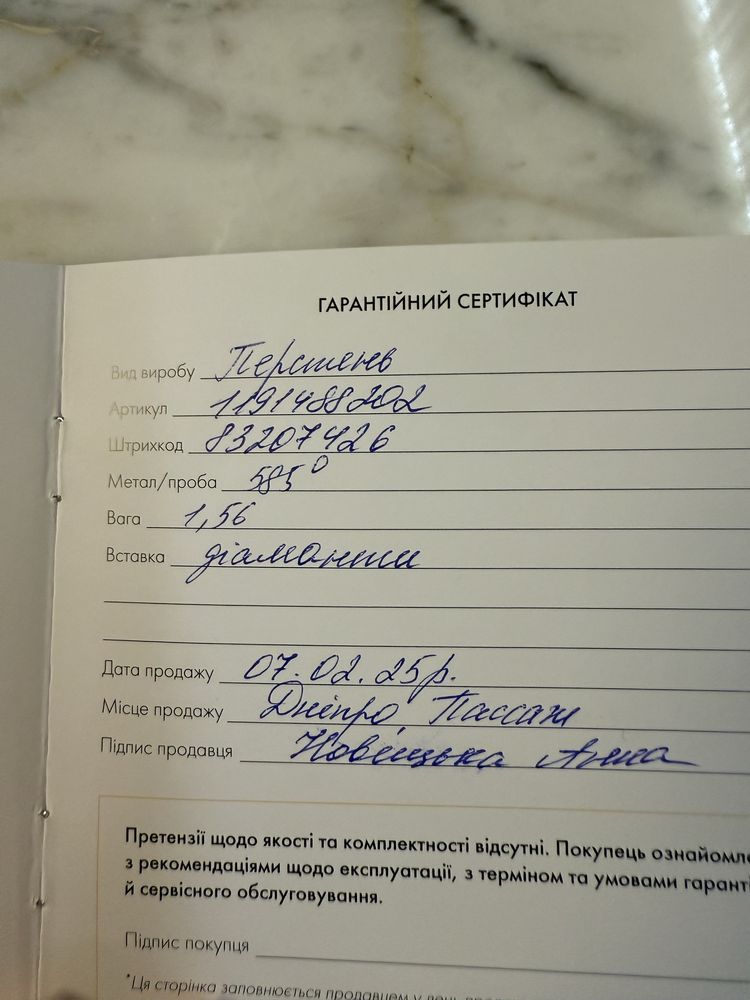 ГАРАНТІЙНИЙ СЕРТИФІКАТ
Вид виробу Перстень
Артикул 1191488202
Штрихкод 83207426
Метал/проба 585°
Вага 1,56
Вставка діаманти
Дата продажу 07.02.25р.
Місце продажу Дніпро, Пассаж
Підпис продавця Новіцька Анна
Претензії щодо якості та комплектності відсутні. Покупець ознайомле
з рекомендаціями щодо експлуатації, з терміном та умовами гарант
й сервісного обслуговування.
Підпис покупця
*Ця сторінка заповнюється продавцем у день